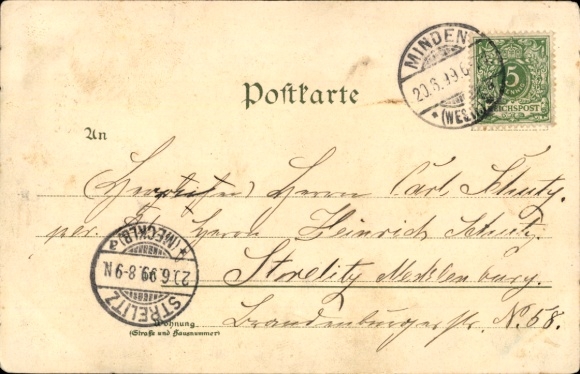 MINDEN
20.6.99.6
* (WESTF.)
5
REICHSPOST
Postkarte
An
Herrn Carl Schutz.
per. Herrn Heinrich Schutz.
Strelitz Mecklenburg.
Brandenburgerstr. N. 58.
* (MECKLB)
20.6.99.8-9N
STRELITZ
Wohnung
(Straße und Hausnummer)